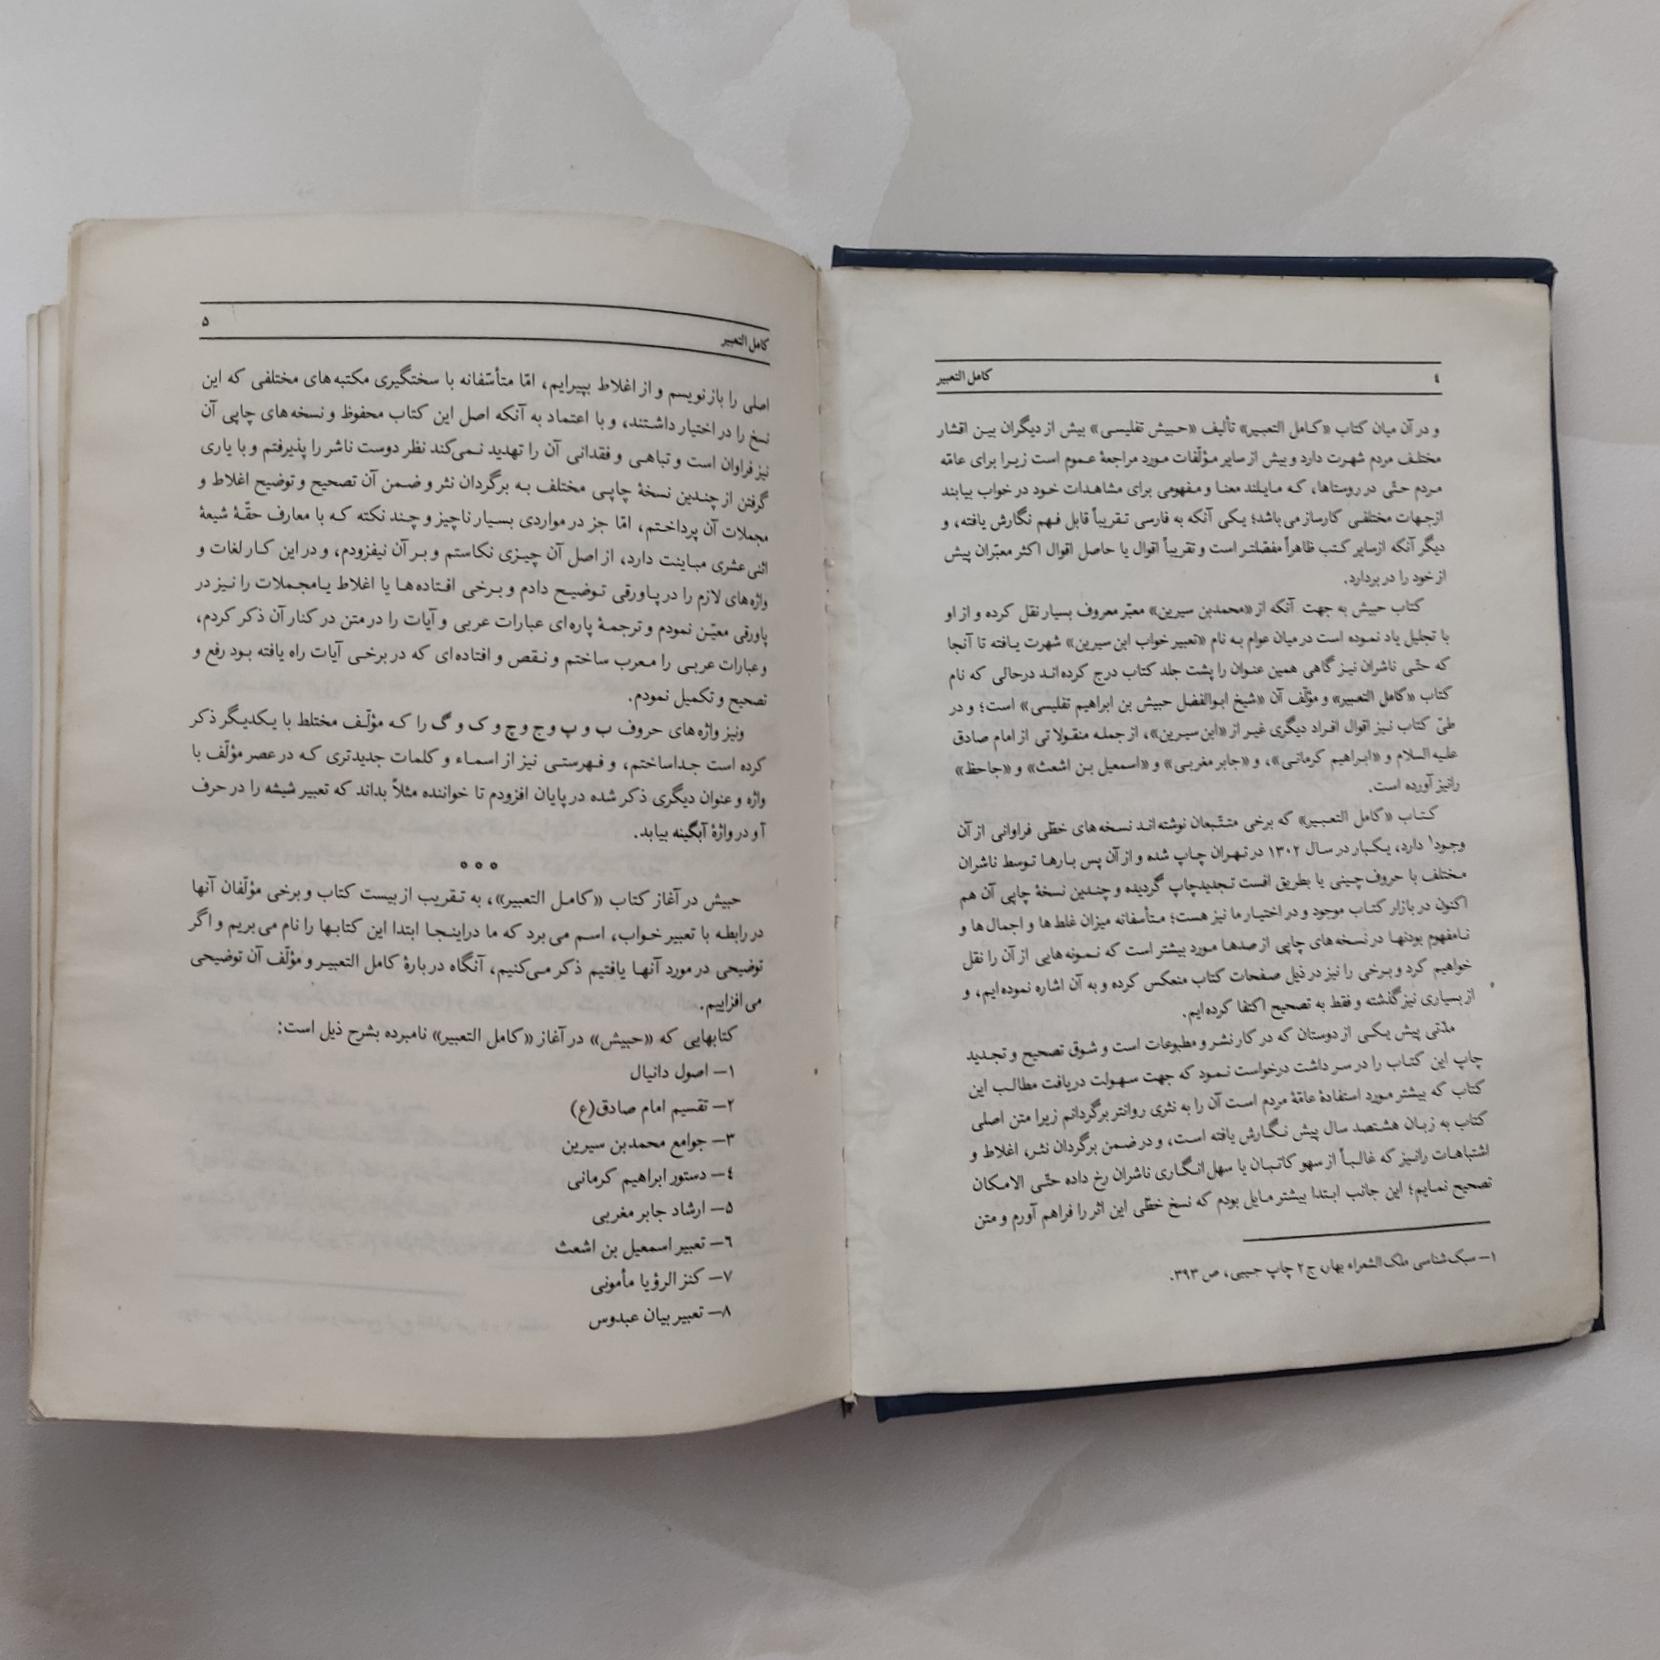 ٤
کامل التعبیر
و در آن میان کتاب «کامل التعبیر» تألیف «حبیش تفلیسی» بیش از دیگران بین اقشار
مختلف مردم شهرت دارد و بیش از سایر مؤلّفات مورد مراجعهٔ عموم است زیرا برای عامّه
مردم حتّی در روستاها، که مایلند معنا و مفهومی برای مشاهدات خود در خواب بیابند
ازجهات مختلفی کارساز می‌باشد؛ یکی آنکه به فارسی تقریباً قابل فهم نگارش یافته، و
دیگر آنکه ازسایر کتب ظاهراً مفصّلتر است و تقریباً اقوال یا حاصل اقوال اکثر معبّران پیش
از خود را در بردارد.
کتاب حبیش به جهت آنکه از «محمدبن سیرین» معبّر معروف بسیار نقل کرده و از او
با تجلیل یاد نموده است در میان عوام به نام «تعبیر خواب ابن سیرین» شهرت یافته تا آنجا
که حتّی ناشران نیز گاهی همین عنوان را پشت جلد کتاب درج کرده‌اند درحالی که نام
کتاب «کامل التعبیر» و مؤلّف آن «شیخ ابوالفضل حبیش بن ابراهیم تفلیسی» است؛ و در
طیّ کتاب نیز اقوال افراد دیگری غیر از «ابن سیرین»، از جمله منقولاتی از امام صادق
علیه السلام و «ابراهیم کرمانی»، و «جابر مغربی» و «اسمعیل بن اشعث» و «جاحظ»
رانیز آورده است.
کتاب «کامل التعبیر» که برخی متتبّعان نوشته‌اند نسخه‌های خطّی فراوانی از آن
وجود۱ دارد، یکبار در سال ۱۳۰۲ در تهران چاپ شده و از آن پس بارها توسط ناشران
مختلف با حروف‌چینی یا بطریق افست تجدیدچاپ گردیده و چندین نسخهٔ چاپی آن هم
اکنون در بازار کتاب موجود و در اختیار ما نیز هست؛ متأسفانه میزان غلط‌ها و اجمال‌ها و
نامفهوم بودنها در نسخه‌های چاپی از صدها مورد بیشتر است که نمونه‌هایی از آن را نقل
خواهیم کرد و برخی را نیز در ذیل صفحات کتاب منعکس کرده و به آن اشاره نموده‌ایم، و
از بسیاری نیز گذشته و فقط به تصحیح اکتفا کرده‌ایم.
مدّتی پیش یکی از دوستان که در کار نشر و مطبوعات است و شوق تصحیح و تجدید
چاپ این کتاب را در سر داشت درخواست نمود که جهت سهولت دریافت مطالب این
کتاب که بیشتر مورد استفادهٔ عامّهٔ مردم است آن را به نثری روانتر برگردانم زیرا متن اصلی
کتاب به زبان هشتصد سال پیش نگارش یافته است، و در ضمن برگردان نثر، اغلاط و
اشتباهات رانیز که غالباً از سهو کاتبان یا سهل‌انگاری ناشران رخ داده حتّی الامکان
تصحیح نمایم؛ این جانب ابتدا بیشتر مایل بودم که نسخ خطّی این اثر را فراهم آورم و متن
۱– سبک‌شناسی ملک‌الشعراء بهار، ج ۲ چاپ جیبی، ص ۳۹۳.
۵
کامل التعبیر
اصلی را بازنویسم و از اغلاط بپیرایم، امّا متأسّفانه با سختگیری مکتبه‌های مختلفی که این
نسخ را در اختیار داشتند، و با اعتماد به آنکه اصل این کتاب محفوظ و نسخه‌های چاپی آن
نیز فراوان است و تباهی و فقدانی آن را تهدید نمی‌کند نظر دوست ناشر را پذیرفتم و با یاری
گرفتن از چندین نسخهٔ چاپی مختلف به برگردان نثر و ضمن آن تصحیح و توضیح اغلاط و
مجملات آن پرداختم، امّا جز در مواردی بسیار ناچیز و چند نکته که با معارف حقّهٔ شیعهٔ
اثنی عشری مباینت دارد، از اصل آن چیزی نکاستم و بر آن نیفزودم، و در این کار لغات و
واژه‌های لازم را در پاورقی توضیح دادم و برخی افتاده‌ها یا اغلاط یا مجملات را نیز در
پاورقی معیّن نمودم و ترجمهٔ پاره‌ای عبارات عربی و آیات را در متن در کنار آن ذکر کردم،
و عبارات عربی را معرب ساختم و نقص و افتاده‌ای که در برخی آیات راه یافته بود رفع و
تصحیح و تکمیل نمودم.
ونیز واژه‌های حروف ب و پ و ج و چ و ک و گ را که مؤلّف مختلط با یکدیگر ذکر
کرده است جداساختم، و فهرستی نیز از اسماء و کلمات جدیدتری که در عصر مؤلّف با
واژه و عنوان دیگری ذکر شده در پایان افزودم تا خواننده مثلاً بداند که تعبیر شیشه را در حرف
آ و در واژهٔ آبگینه بیابد.
* * *
حبیش در آغاز کتاب «کامل التعبیر»، به تقریب از بیست کتاب و برخی مؤلّفان آنها
در رابطه با تعبیر خواب، اسم می‌برد که ما دراینجا ابتدا این کتابها را نام می‌بریم و اگر
توضیحی در مورد آنها یافتیم ذکر می‌کنیم، آنگاه دربارهٔ کامل التعبیر و مؤلّف آن توضیحی
می‌افزاییم.
کتابهایی که «حبیش» در آغاز «کامل التعبیر» نامبرده بشرح ذیل است:
۱– اصول دانیال
۲– تقسیم امام صادق(ع)
۳– جوامع محمدبن سیرین
٤– دستور ابراهیم کرمانی
۵– ارشاد جابر مغربی
٦– تعبیر اسمعیل بن اشعث
۷– کنز الرؤیا مأمونی
۸– تعبیر بیان عبدوس